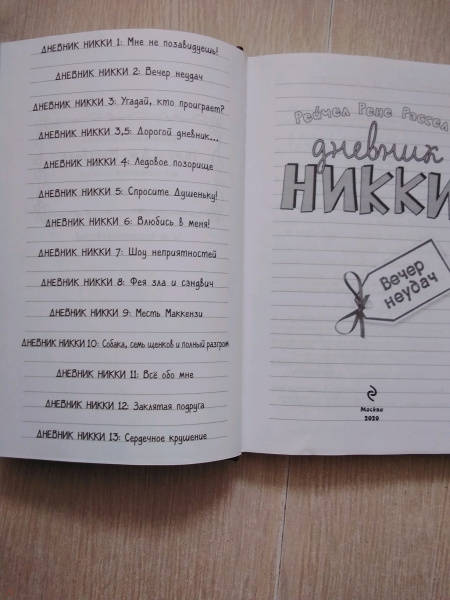 ДНЕВНИК НИККИ 1: Мне не позавидуешь!
ДНЕВНИК НИККИ 2: Вечер неудач
ДНЕВНИК НИККИ 3: Угадай, кто проиграет?
ДНЕВНИК НИККИ 3,5: Дорогой дневник...
ДНЕВНИК НИККИ 4: Ледовое позорище
ДНЕВНИК НИККИ 5: Спросите Душеньку!
ДНЕВНИК НИККИ 6: Влюбись в меня!
ДНЕВНИК НИККИ 7: Шоу неприятностей
ДНЕВНИК НИККИ 8: Фея зла и сэндвич
ДНЕВНИК НИККИ 9: Месть Маккензи
ДНЕВНИК НИККИ 10: Собака, семь щенков и полный разгром
ДНЕВНИК НИККИ 11: Всё обо мне
ДНЕВНИК НИККИ 12: Заклятая подруга
ДНЕВНИК НИККИ 13: Сердечное крушение
Рейчел Рене Рассел
дневник
НИККИ
Вечер
неудач
Москва
2020